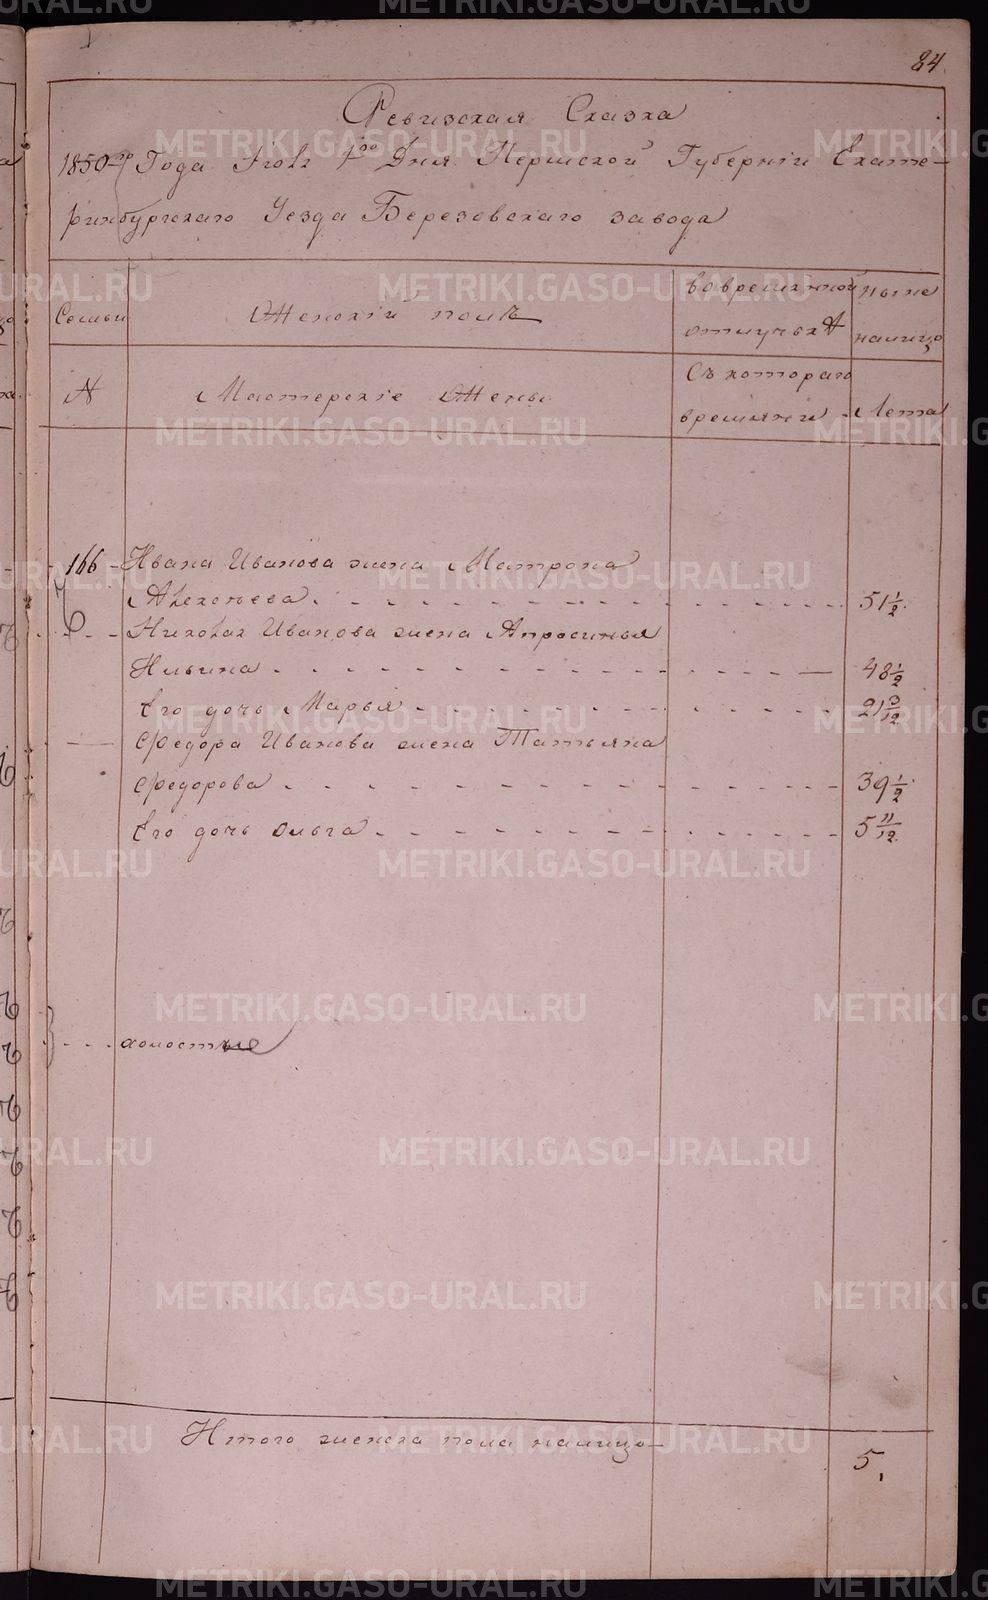 84
Ревизская Сказка
1850го Года Июля 1го Дня Пермской Губернiи Екате-
ринбургскаго Уезда Березовскаго завода
Семьи
Женскiй полъ
во временной отлучке
ныне налицо
№
Мастерскiе Жены
Съ котораго времяни
Лета
166 - Ивана Иванова жена Матрона
Алексеева. 51 1/2
Николая Иванова жена Апросинья
Ильина 48 1/2
Его дочь Марья 21
Федора Иванова жена Татьяна
Федорова 39 1/2
Его дочь Ольга 5 11/12
холостые
Итого женска пола налицо - 5.
METRIKI.GASO-URAL.RU